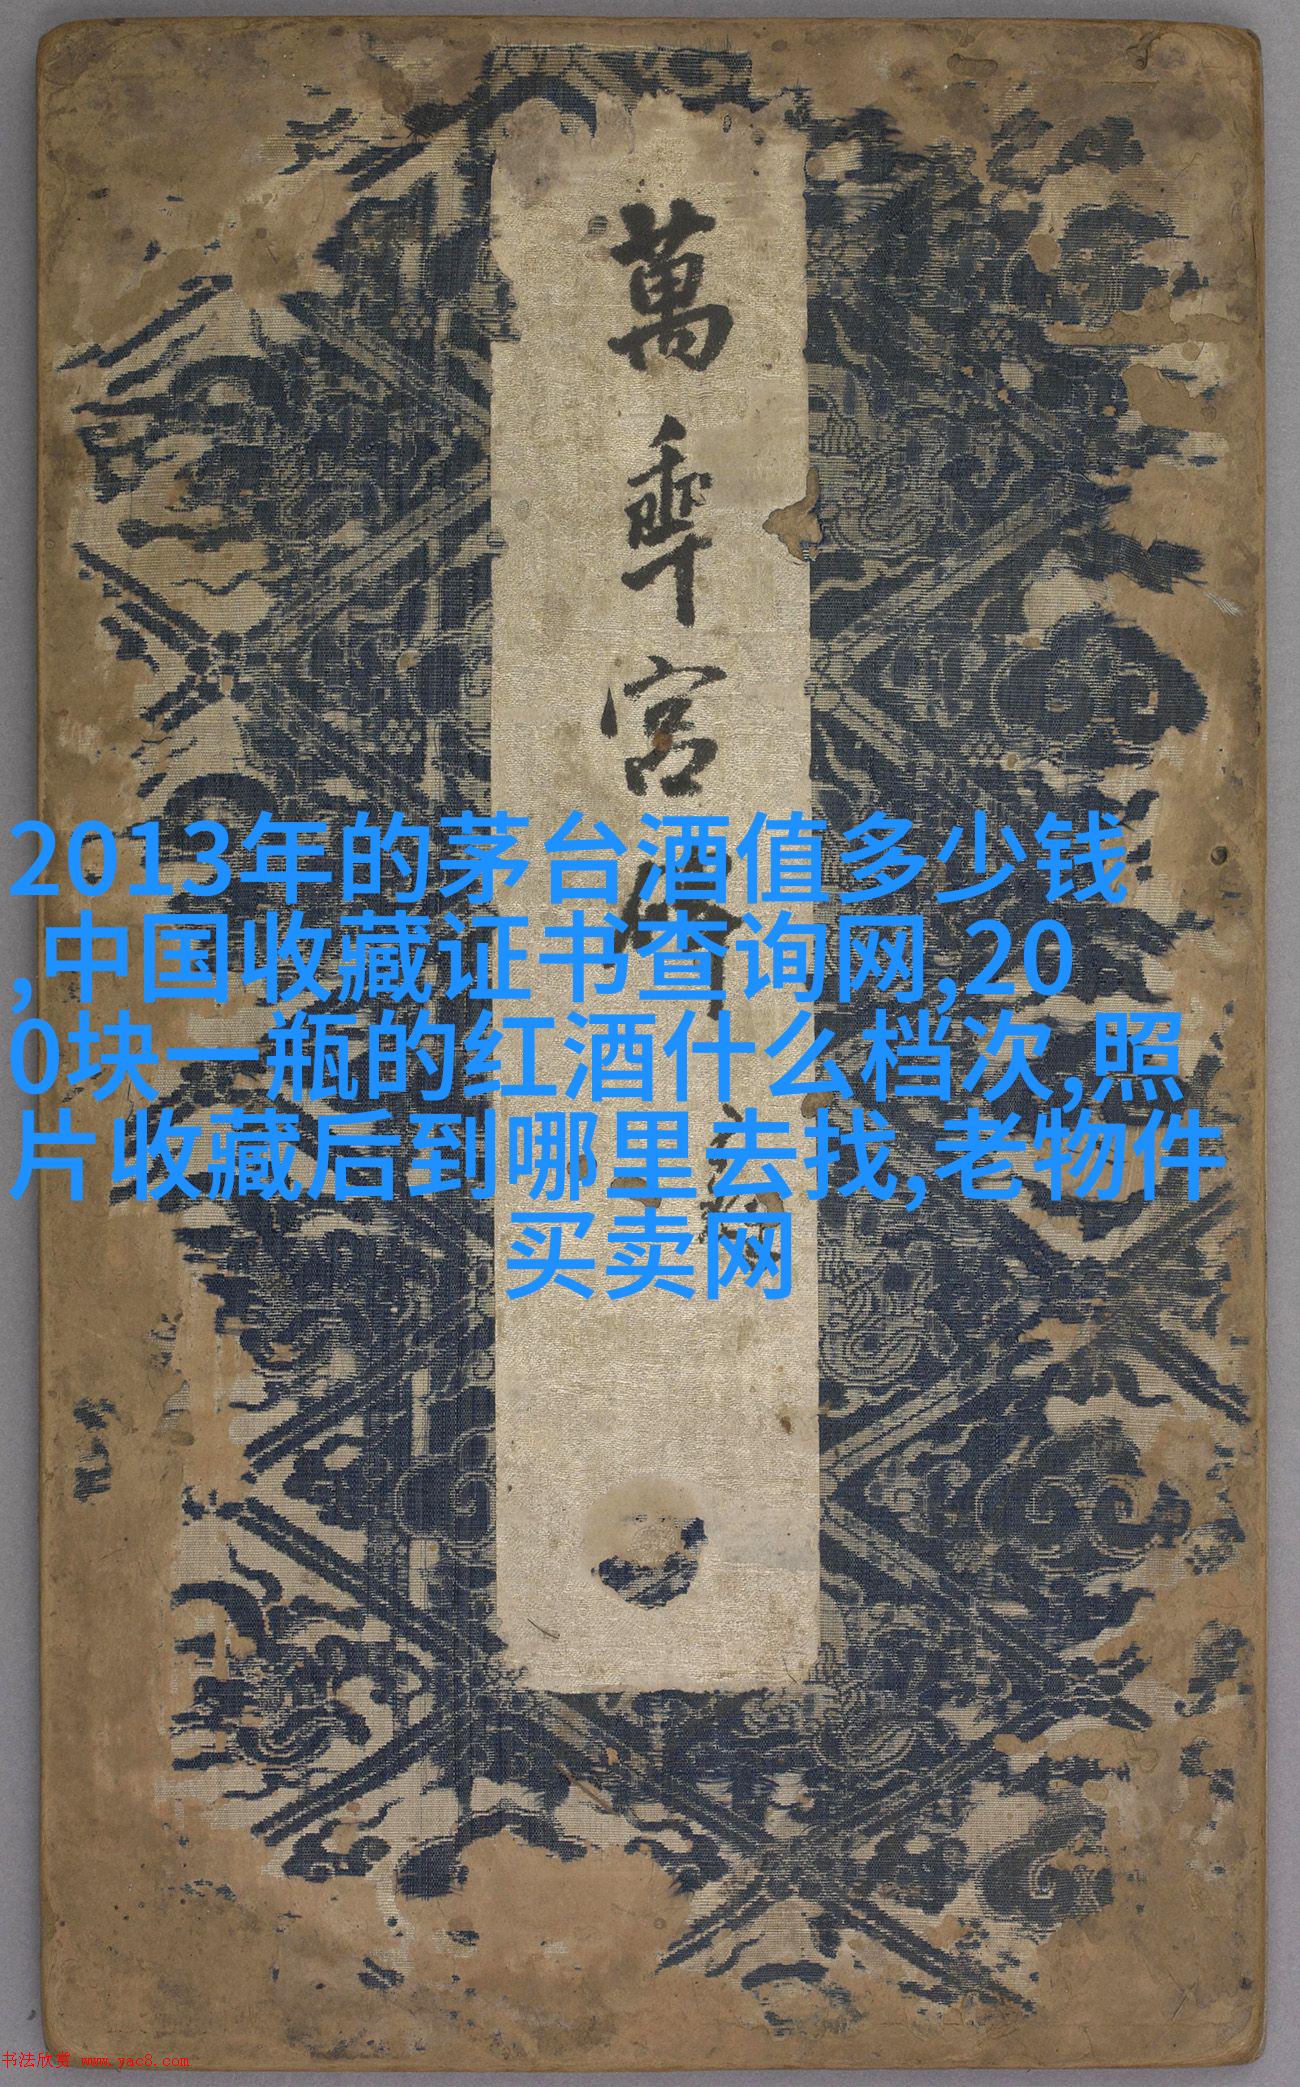 萬年宮
2013年的茅台酒值多少钱
,中国收藏证书查询网,20
0块一瓶的红酒什么档次,照
片收藏后到哪里去找,老物件
买卖网
书法欣赏 www.yac8.com